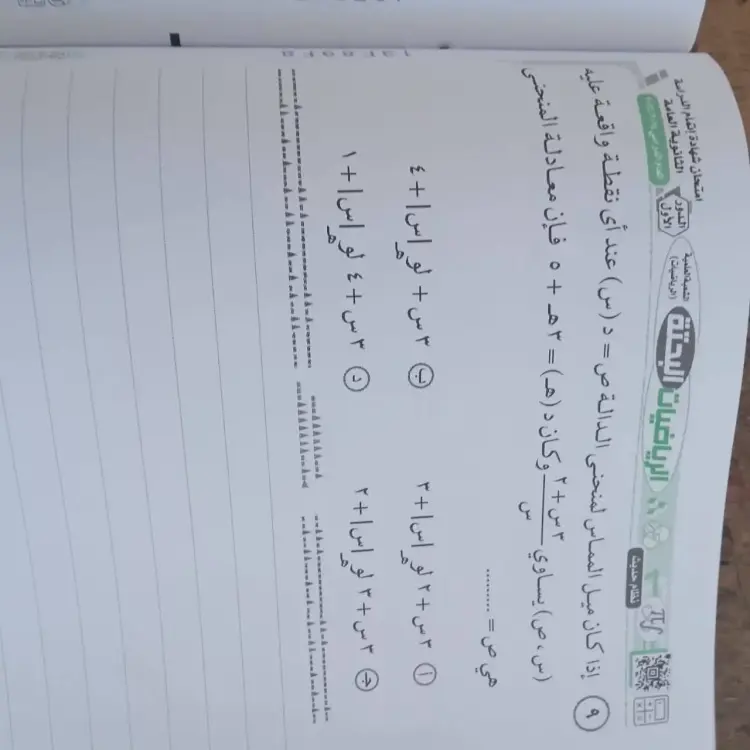 امتحان شهادة إتمام الدراسة
الثانوية العامة
الدور
الأول
الشعبة العلمية
(الرياضيات)
الرياضيات البحتة
نظام حديث
٩ إذا كان ميل المماس لمنحنى الدالة ص = د (س) عند أى نقطة واقعة عليه
(س ، ص) يساوي ٣ س + ٢ / س وكان د (هـ) = ٣ هـ + ٥ فإن معادلة المنحنى
هي ص = ..........
أ ٣ س + ٢ لو هـ |س| + ٣
ب ٣ س + لو هـ |س| + ٤
جـ ٣ س + ٣ لو هـ |س| + ٢
د ٣ س + ٤ لو هـ |س| + ١